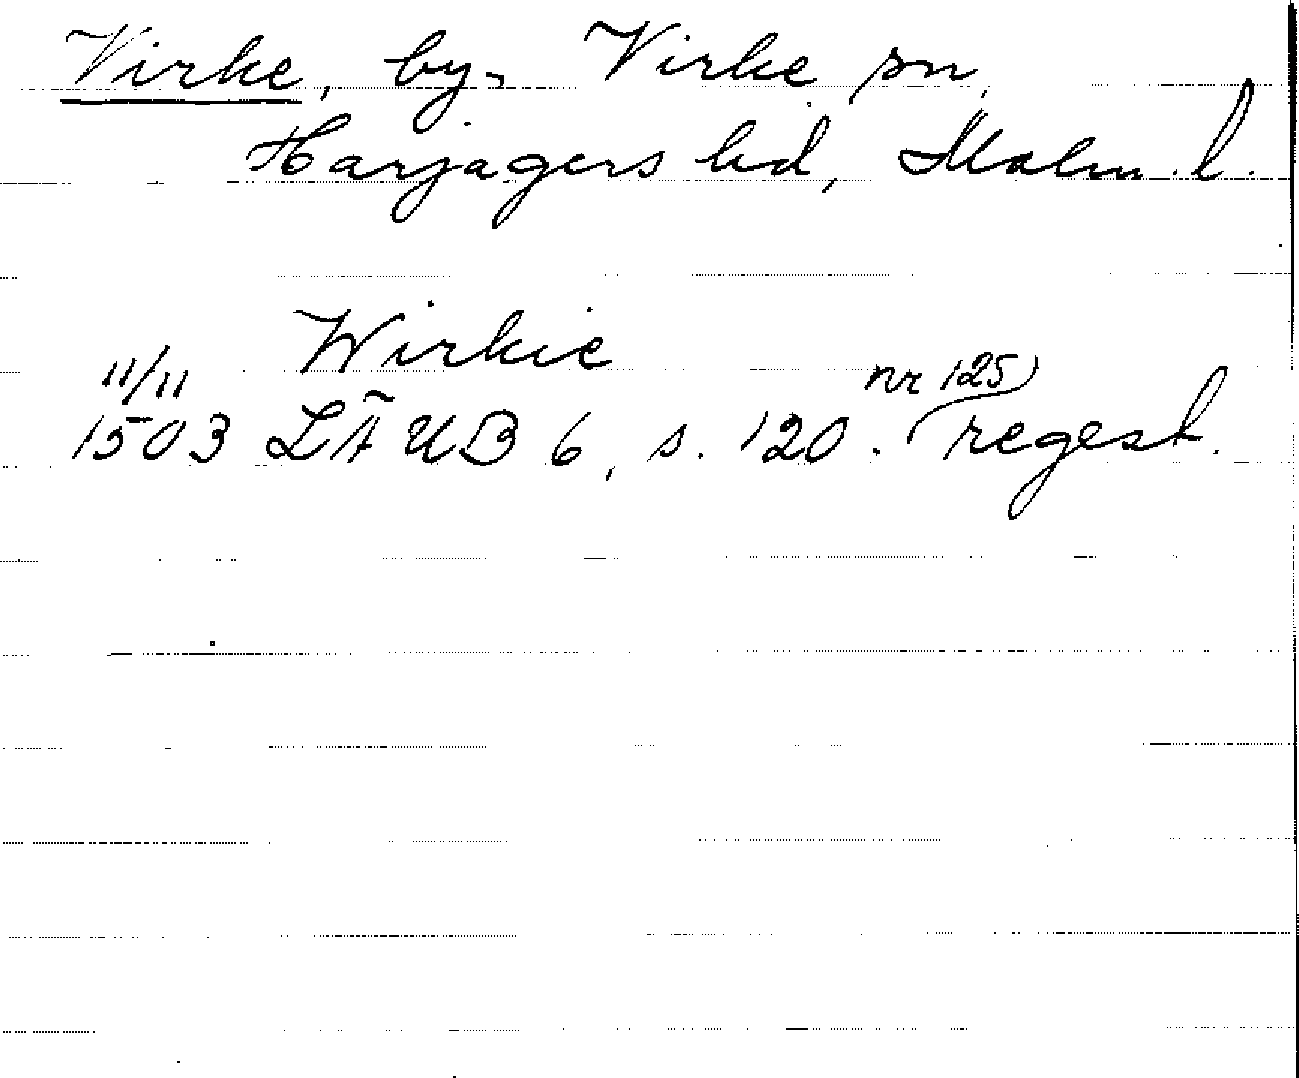 Virke, by, Virke sn,
Harjagers hd, Malm. l.
Wirkie
11/11 nr 125
1503 LÄUB 6, s. 120. regest.